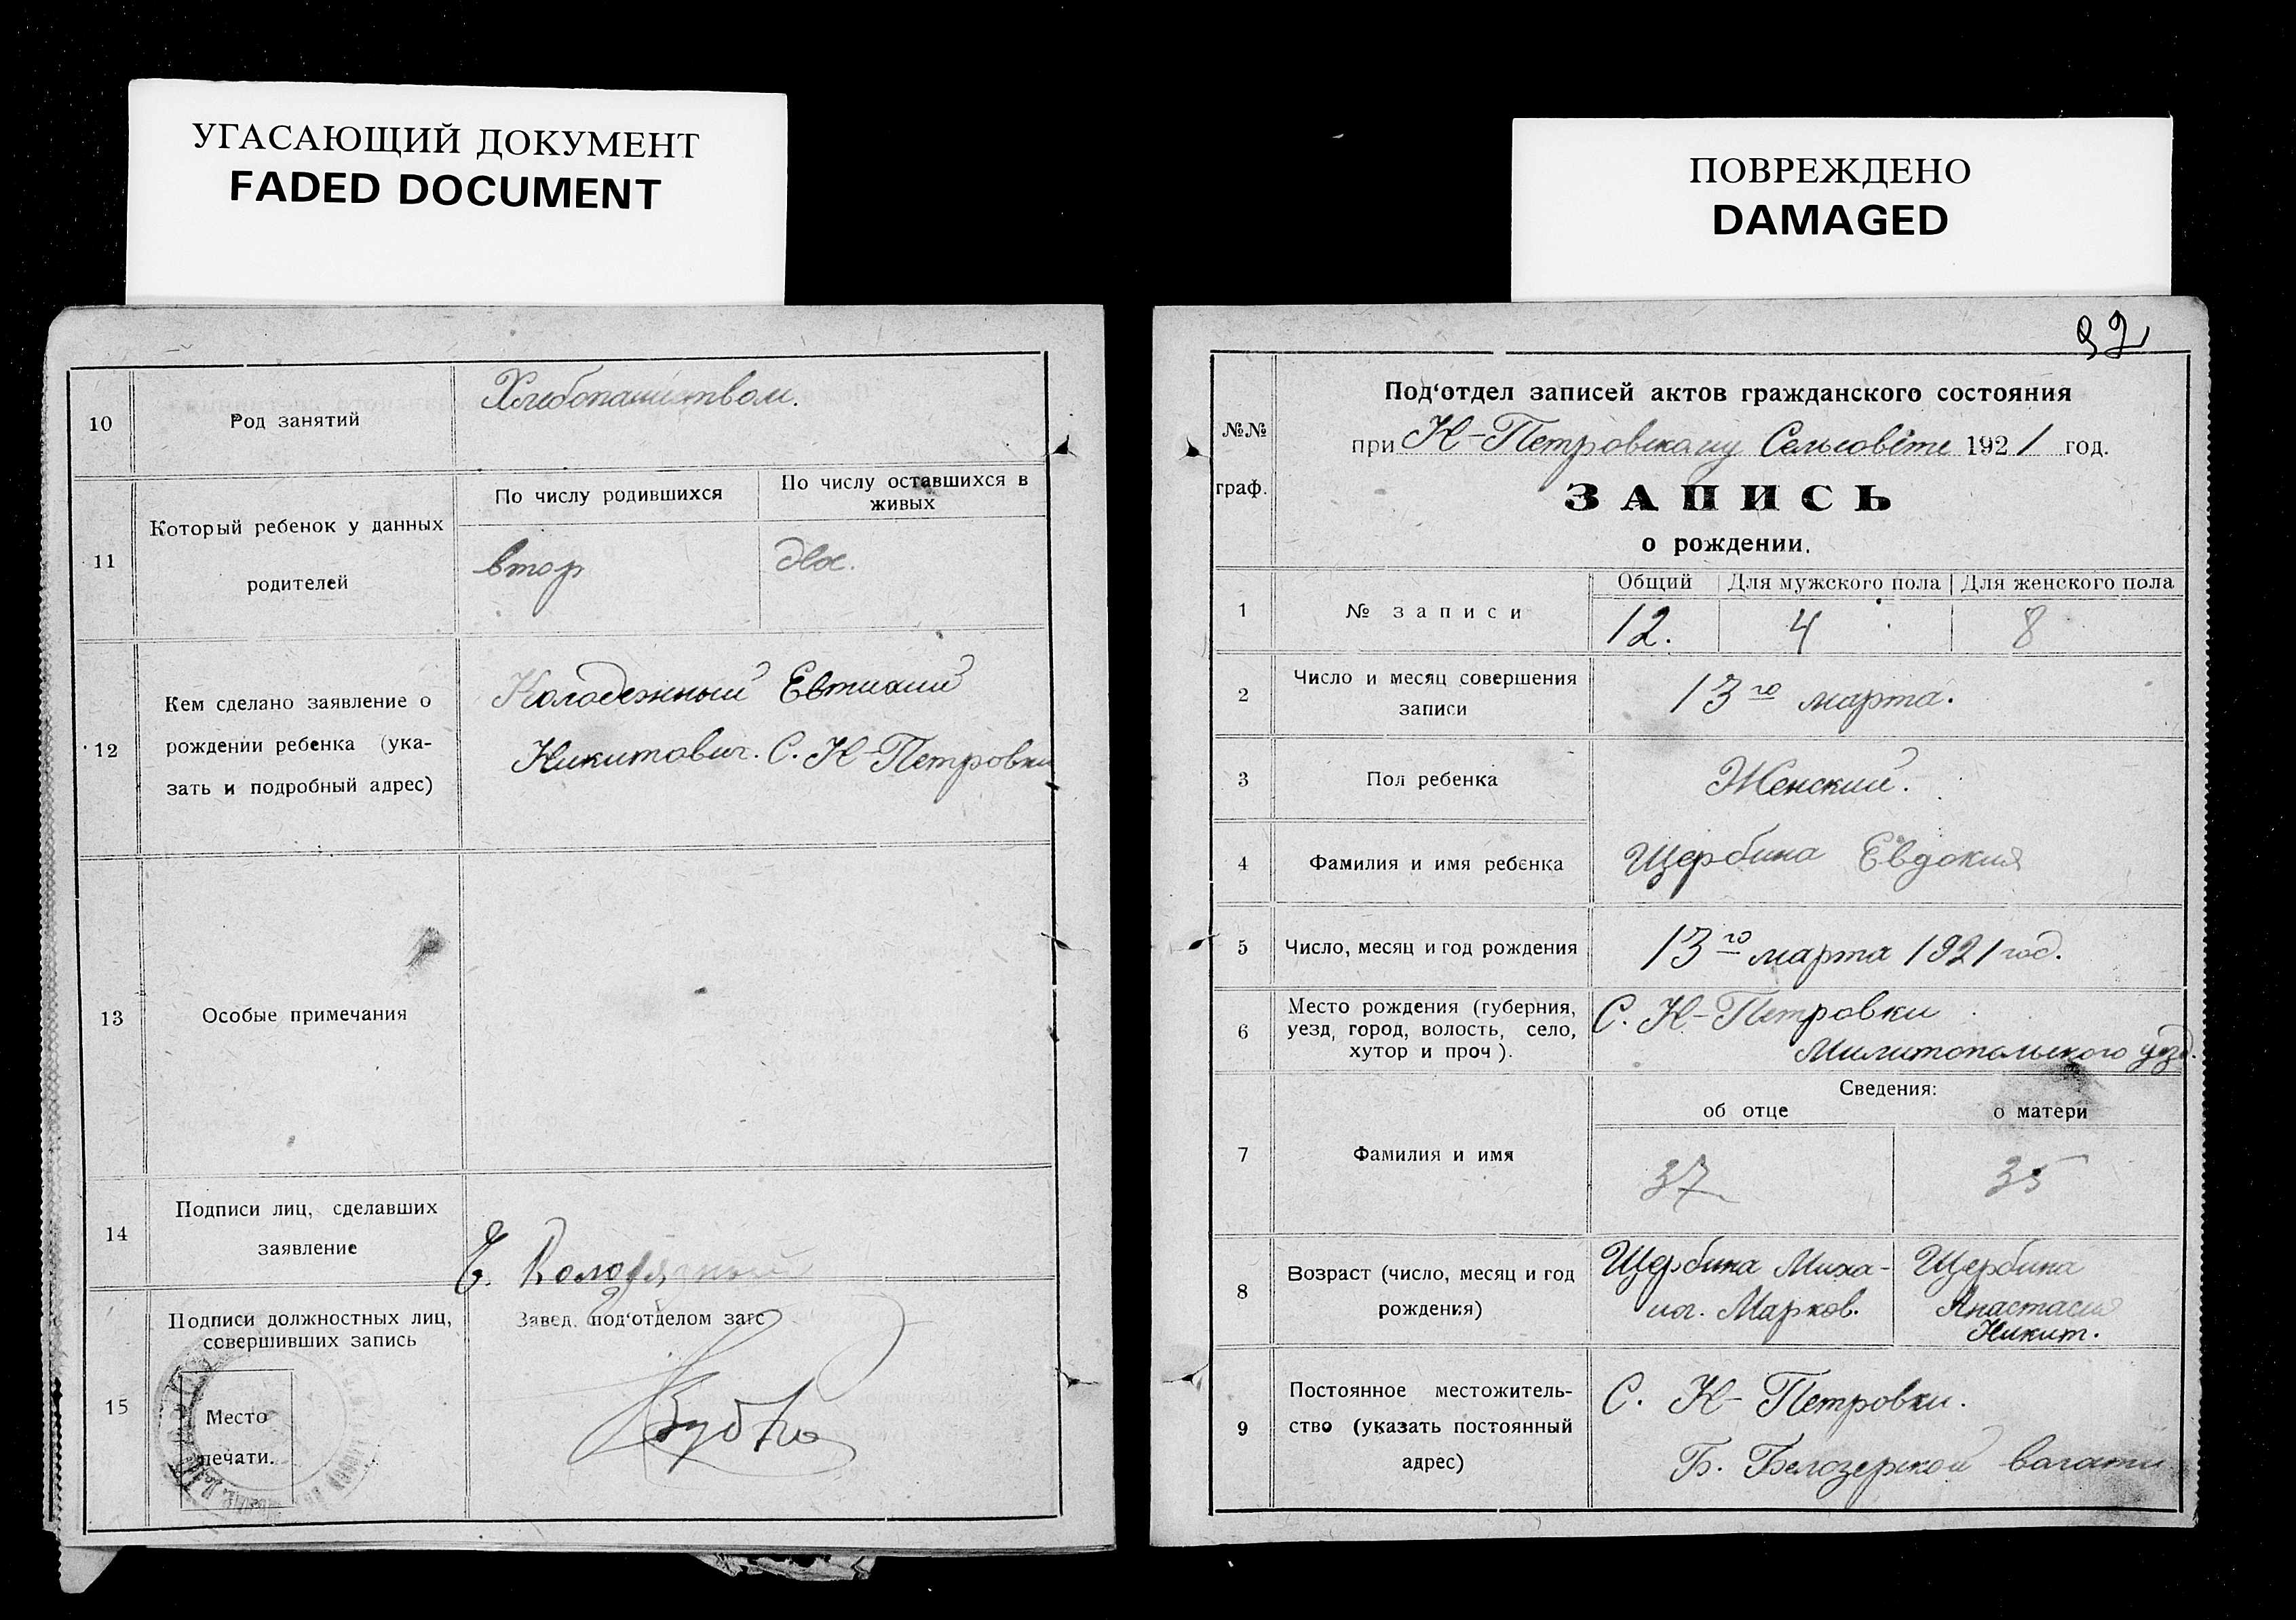 УГАСАЮЩИЙ ДОКУМЕНТ
FADED DOCUMENT
10
Род занятий
Хлебопашеством.
11
Который ребенок у данных
родителей
По числу родившихся
По числу оставшихся в
живых
втор
два.
12
Кем сделано заявление о
рождении ребенка (ука-
зать и подробный адрес)
Колодежный Евтихий
Никитович. С. Н-Петровки
13
Особые примечания
14
Подписи лиц, сделавших
заявление
Е. Колодяжный
15
Подписи должностных лиц,
совершивших запись
Место
печати.
Завед. под‘отделом загс
ПОВРЕЖДЕНО
DAMAGED
92
№№
граф.
Под‘отдел записей актов гражданского состояния
при Н-Петровскому Сельсовѣте 1921 год.
ЗАПИСЬ
о рождении.
1
№ записи
Общий
Для мужского пола
Для женского пола
12.
4
8
2
Число и месяц совершения
записи
13го марта.
3
Пол ребенка
Женский.
4
Фамилия и имя ребенка
Щербина Евдокия
5
Число, месяц и год рождения
13го марта 1921 год.
6
Место рождения (губерния,
уезд, город, волость, село,
хутор и проч).
С. Н-Петровки
Милитопольского уезд.
Сведения:
об отце
о матери
7
Фамилия и имя
37
35
8
Возраст (число, месяц и год
рождения)
Щербина Миха-
ил. Марков.
Щербина
Анастасия
Никит.
9
Постоянное местожитель-
ство (указать постоянный
адрес)
С. Н-Петровки.
Б. Белозерской валости